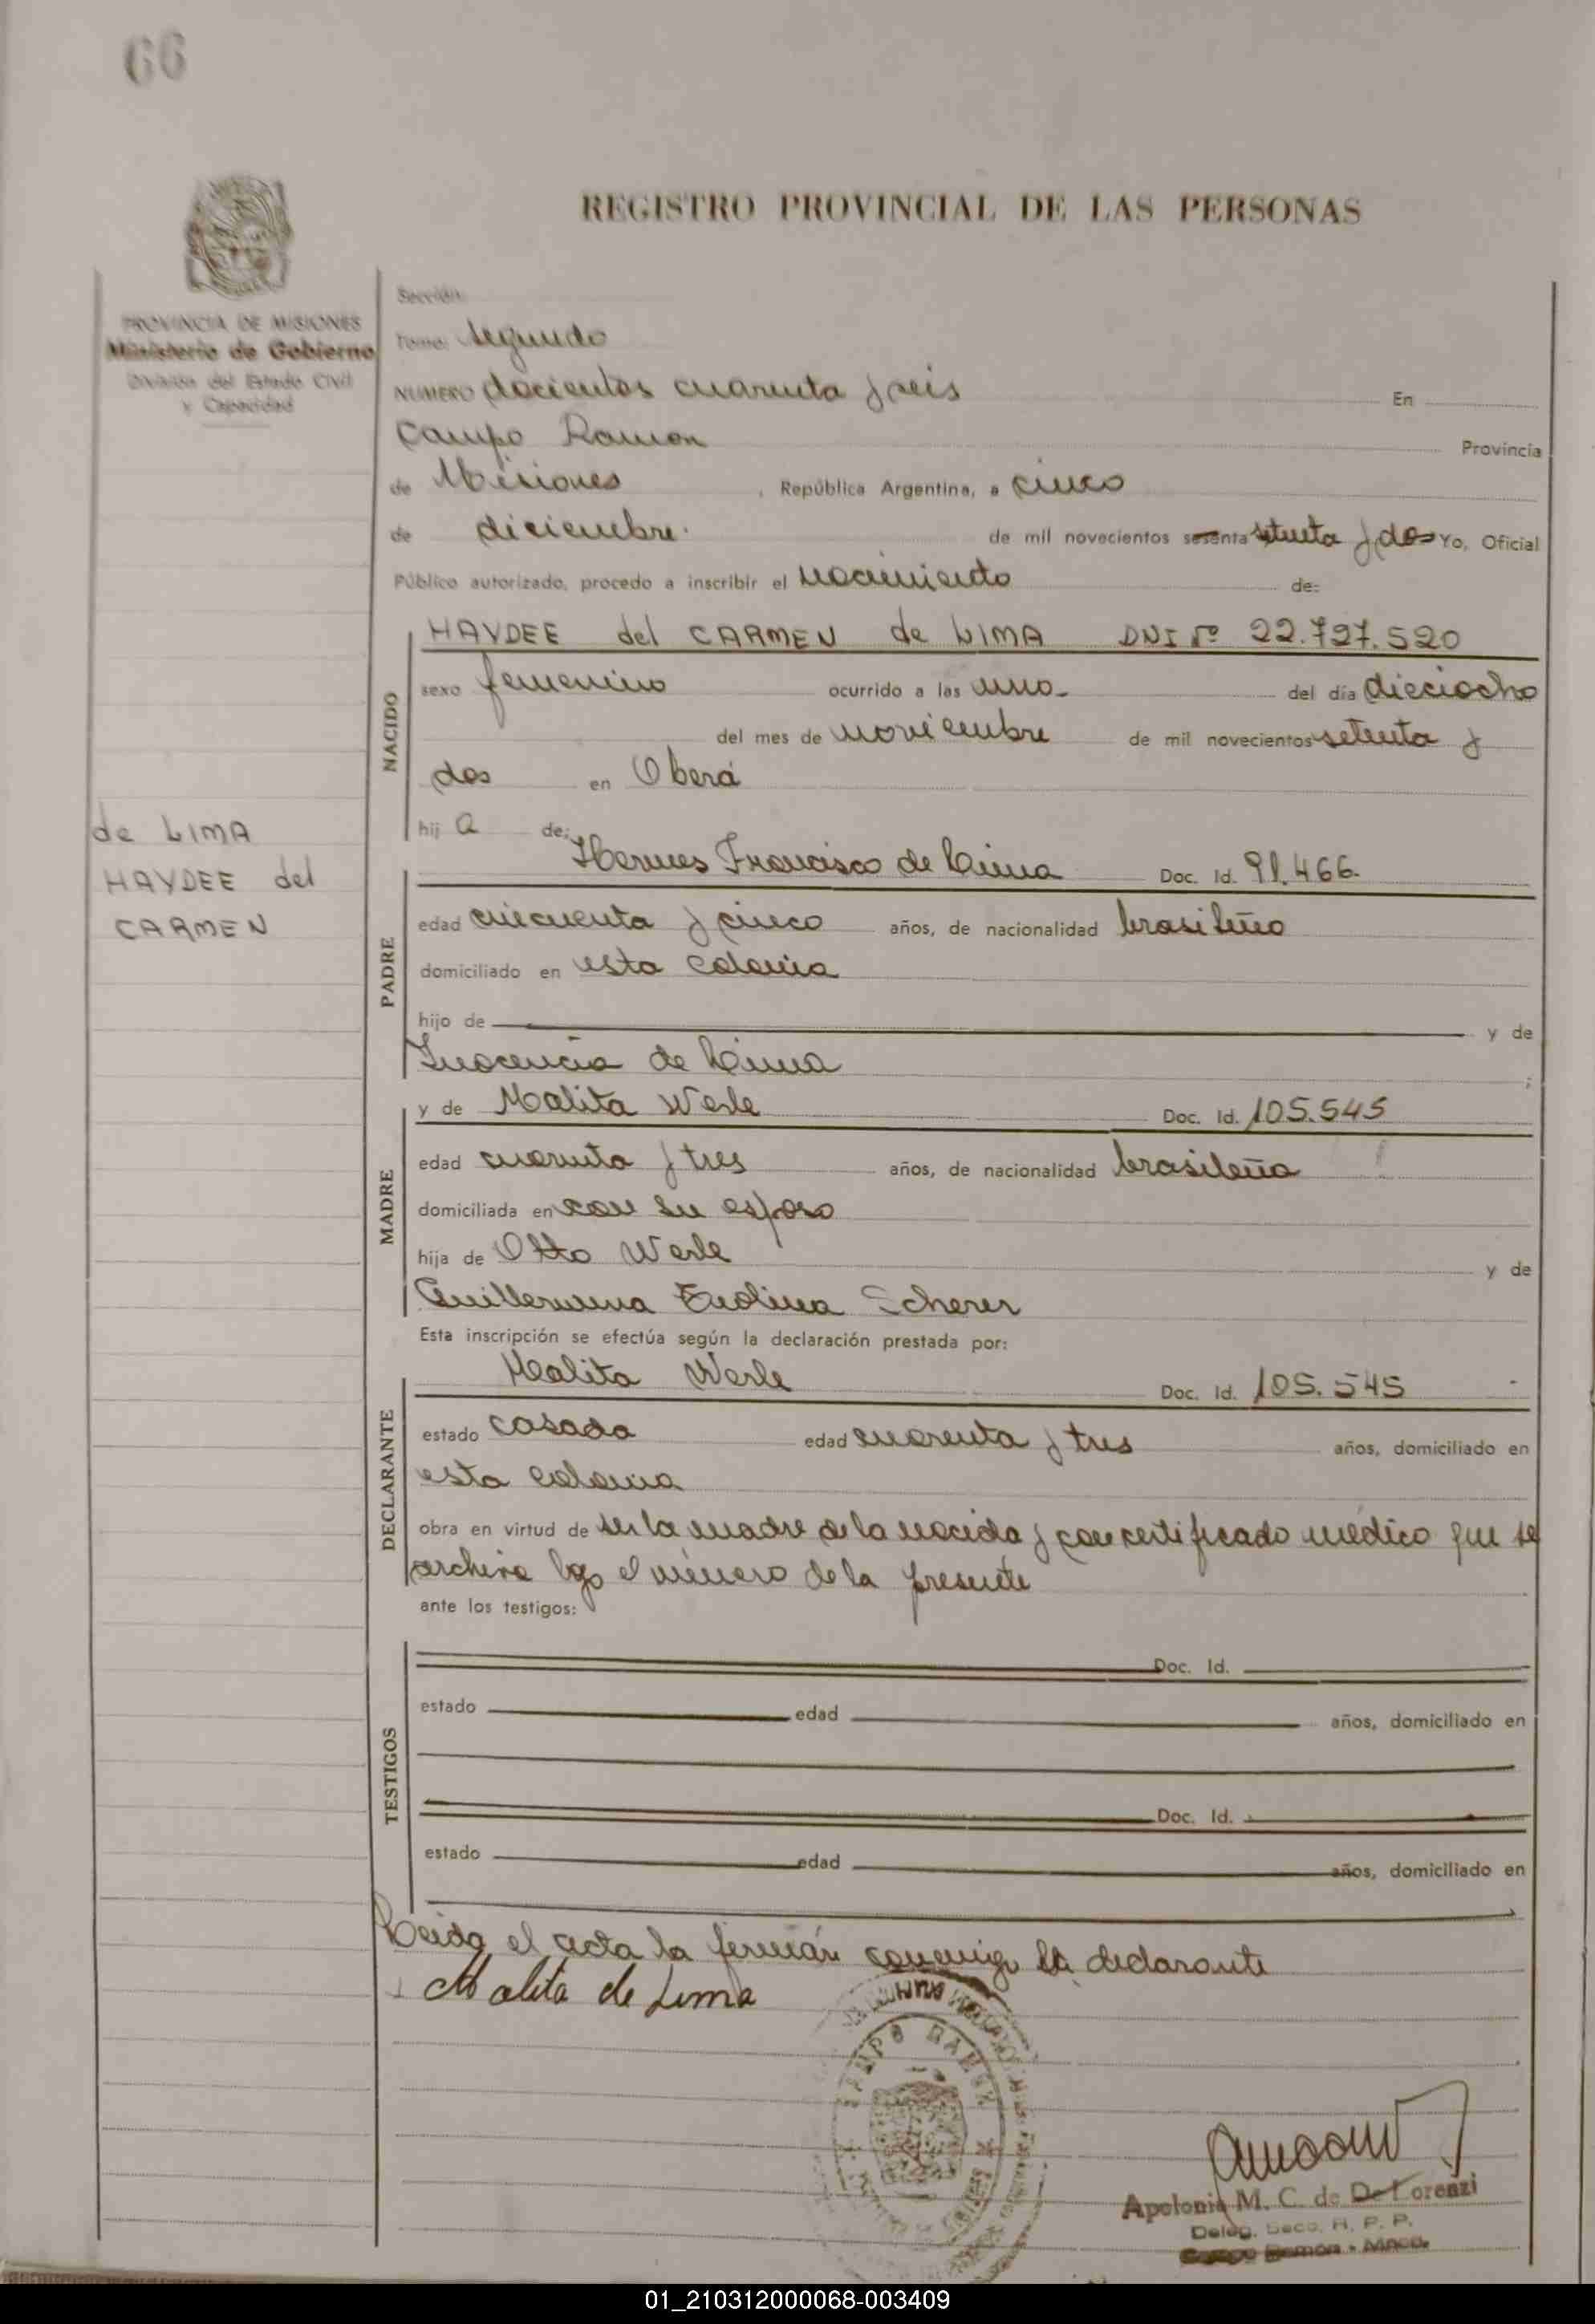 66
REGISTRO PROVINCIAL DE LAS PERSONAS
PROVINCIA DE MISIONES
Ministerio de Gobierno
División del Estado Civil
y Capacidad
de LIMA
HAYDEE del
CARMEN
Sección:
Tomo: Segundo
NUMERO docientos cuarenta y seis En
Campo Ramon Provincia
de Misiones, República Argentina, a cinco
de diciembre. de mil novecientos sesenta setenta y dos Yo, Oficial
Público autorizado, procedo a inscribir el nacimiento de:
NACIDO
HAYDEE del CARMEN de LIMA DNI Nº 22.727.520
sexo femenino ocurrido a las uno del día dieciocho
del mes de noviembre de mil novecientos setenta y
dos en Oberá
hij a de:
PADRE
Hermes Francisco de Lima Doc. Id. 91.466
edad cincuenta y cinco años, de nacionalidad brasileño
domiciliado en esta colonia
hijo de y de
Inocencia de Lima ;
MADRE
y de Malita Werle Doc. Id. 105.545
edad cuarenta y tres años, de nacionalidad brasileña
domiciliada en con su esposo
hija de Otto Werle y de
Guillermina Scherer
Esta inscripción se efectúa según la declaración prestada por:
DECLARANTE
Malita Werle Doc. Id. 105.545
estado casada edad cuarenta y tres años, domiciliado en
esta colonia
obra en virtud de ser la madre de la nacida y con certificado médico que se
archiva bajo el número de la presente
ante los testigos:
TESTIGOS
Doc. Id.
estado edad años, domiciliado en
Doc. Id.
estado edad años, domiciliado en
Leida el acta la firman conmigo la declarante
Malita de Lima
CAMPO RAMON
Apolonia M. C. de De Lorenzi
Deleg. Secc. R. P. P.
Campo Ramón - Mnes.
01_210312000068-003409